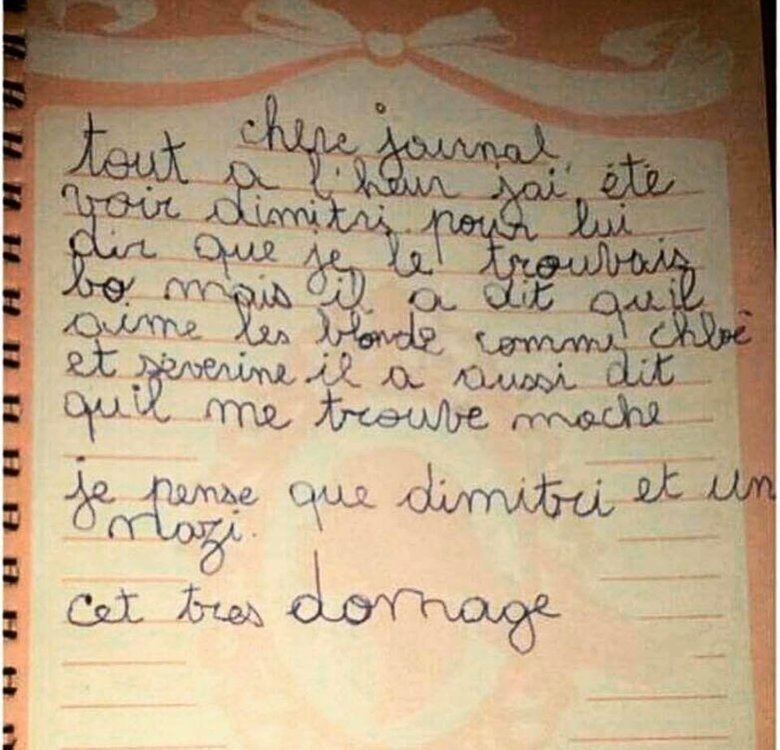 chere journal,
tout a l'heur jai été
voir dimitri pour lui
dir que je le trouvais
bo mais il a dit qu'il
aime les blonde comme chloé
et séverine il a aussi dit
quil me trouve moche
je pense que dimitri et un
nazi.
cet tres domage